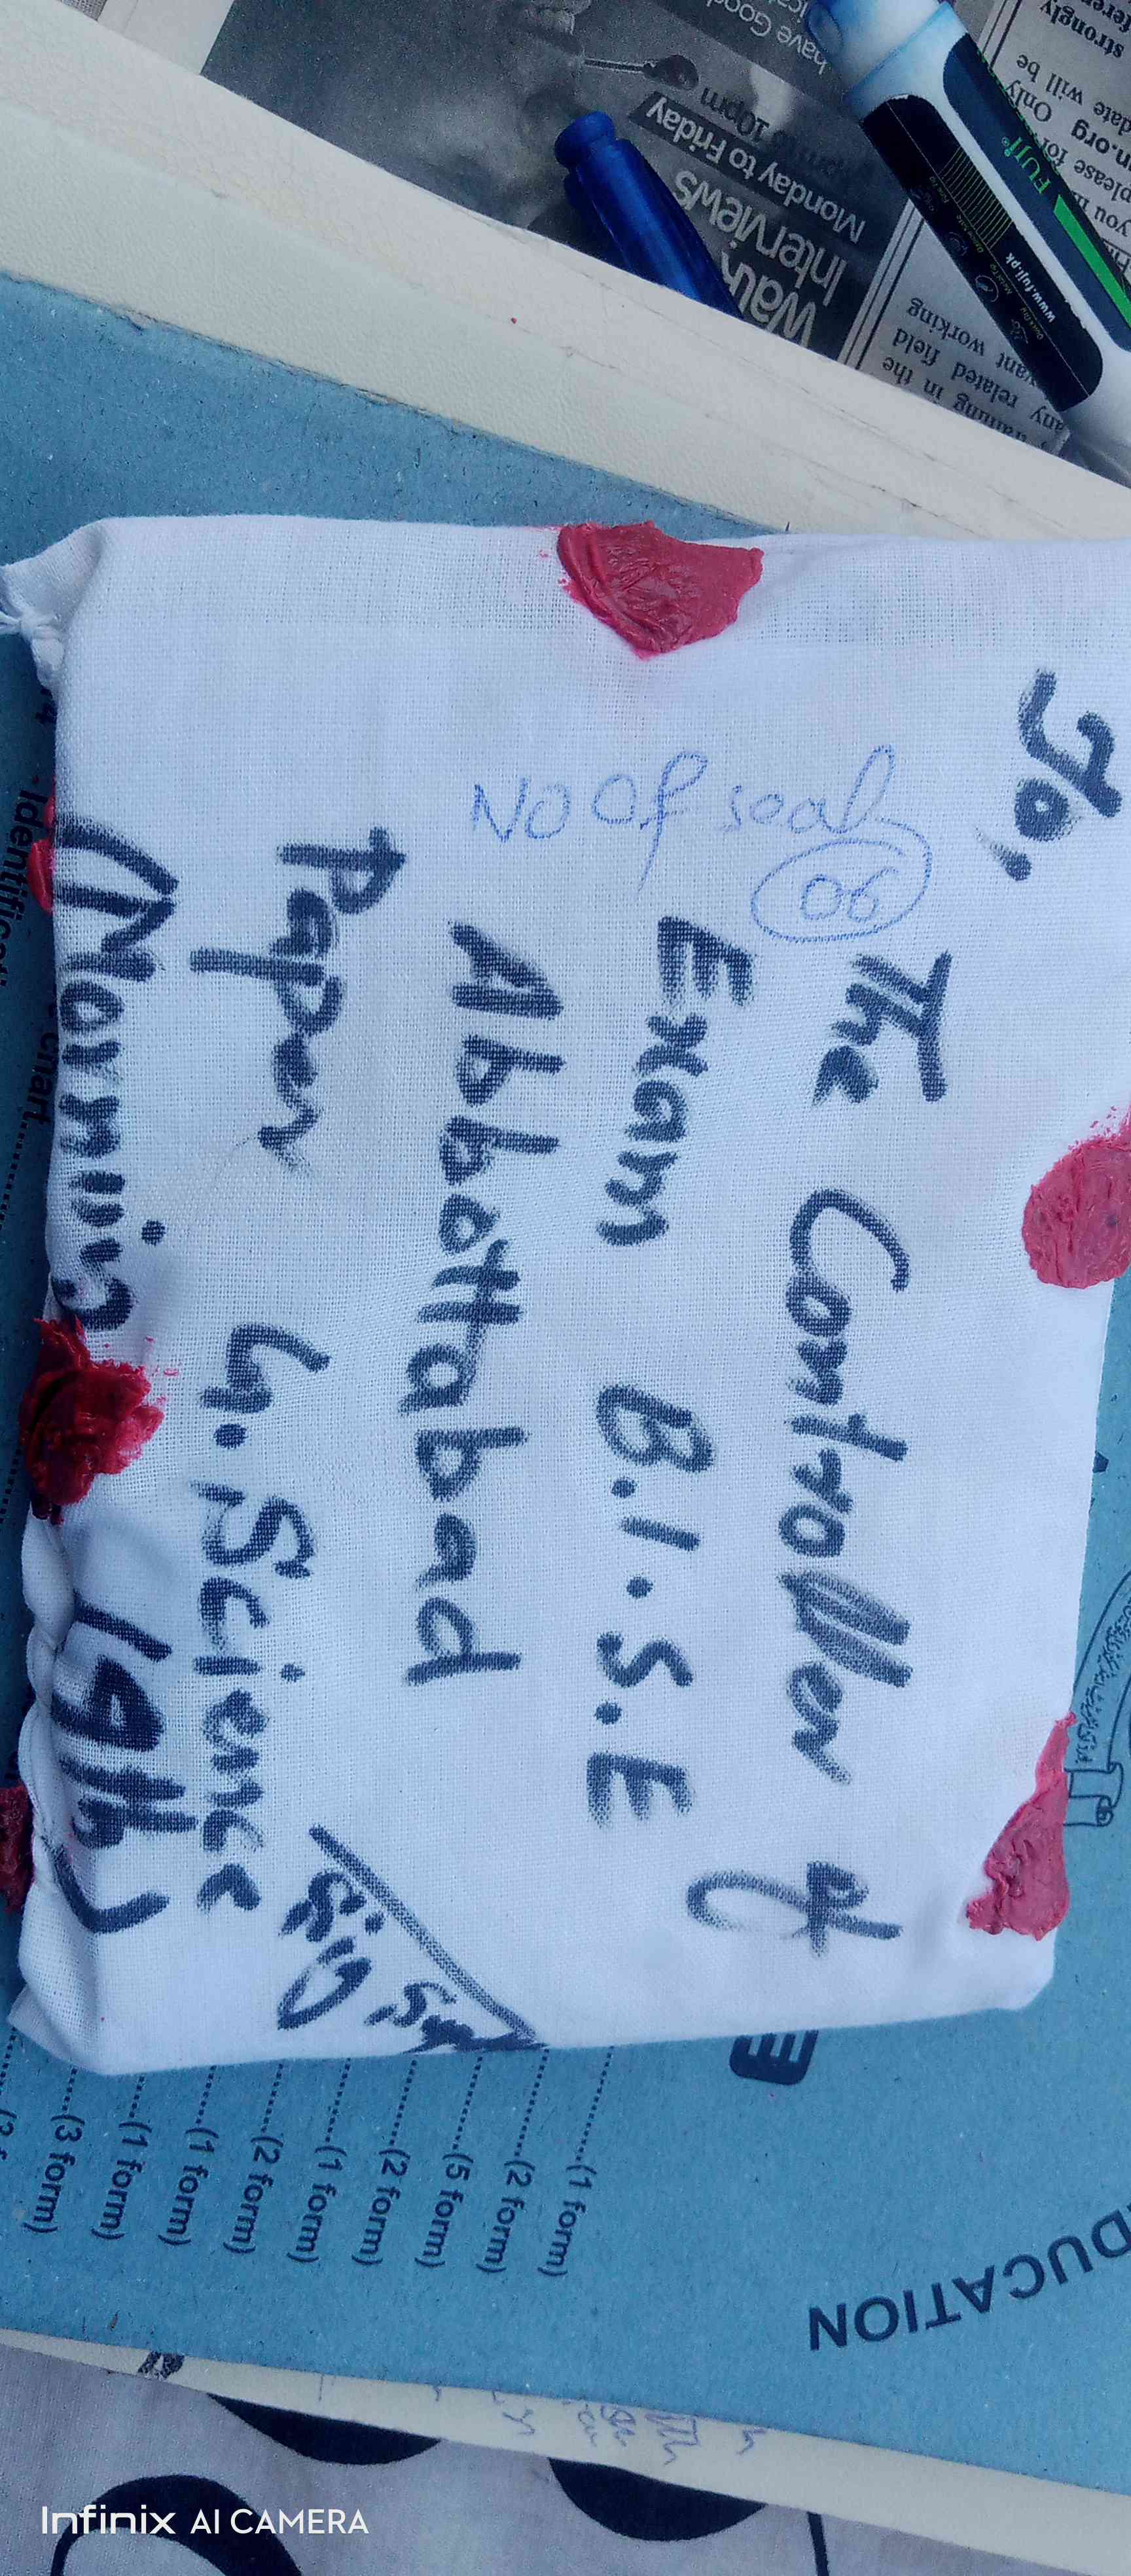 To,
The Controller of
Exam B.I.S.E
Abbottabad
Paper G.Science
(Morning 9th)
No of seal
06
have Good
Walk
Interviews
Monday to Friday
10pm
FUJI
www.fuji.pk
strongly
date will be
Only
please for
n.org
you
training in the
any related field
relevant working
EDUCATION
chart
(1 form)
(2 form)
(5 form)
(2 form)
(1 form)
(2 form)
(1 form)
(1 form)
(3 form)
Infinix AI CAMERA